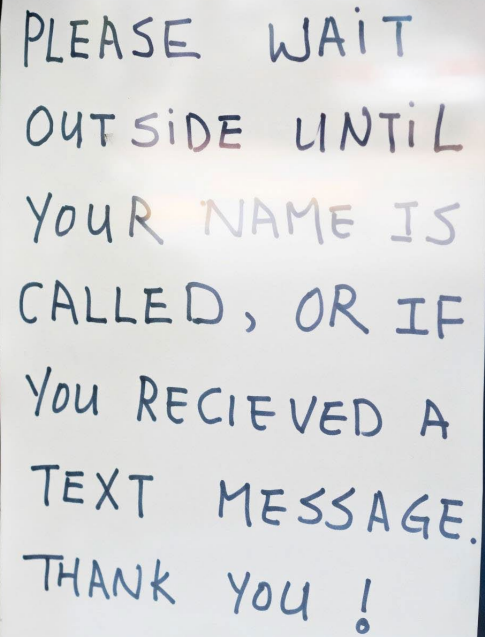 PLEASE WAiT
OUTSiDE UNTiL
YOUR NAME IS
CALLED, OR IF
YOU RECIEVED A
TEXT MESSAGE.
THANK YOU !